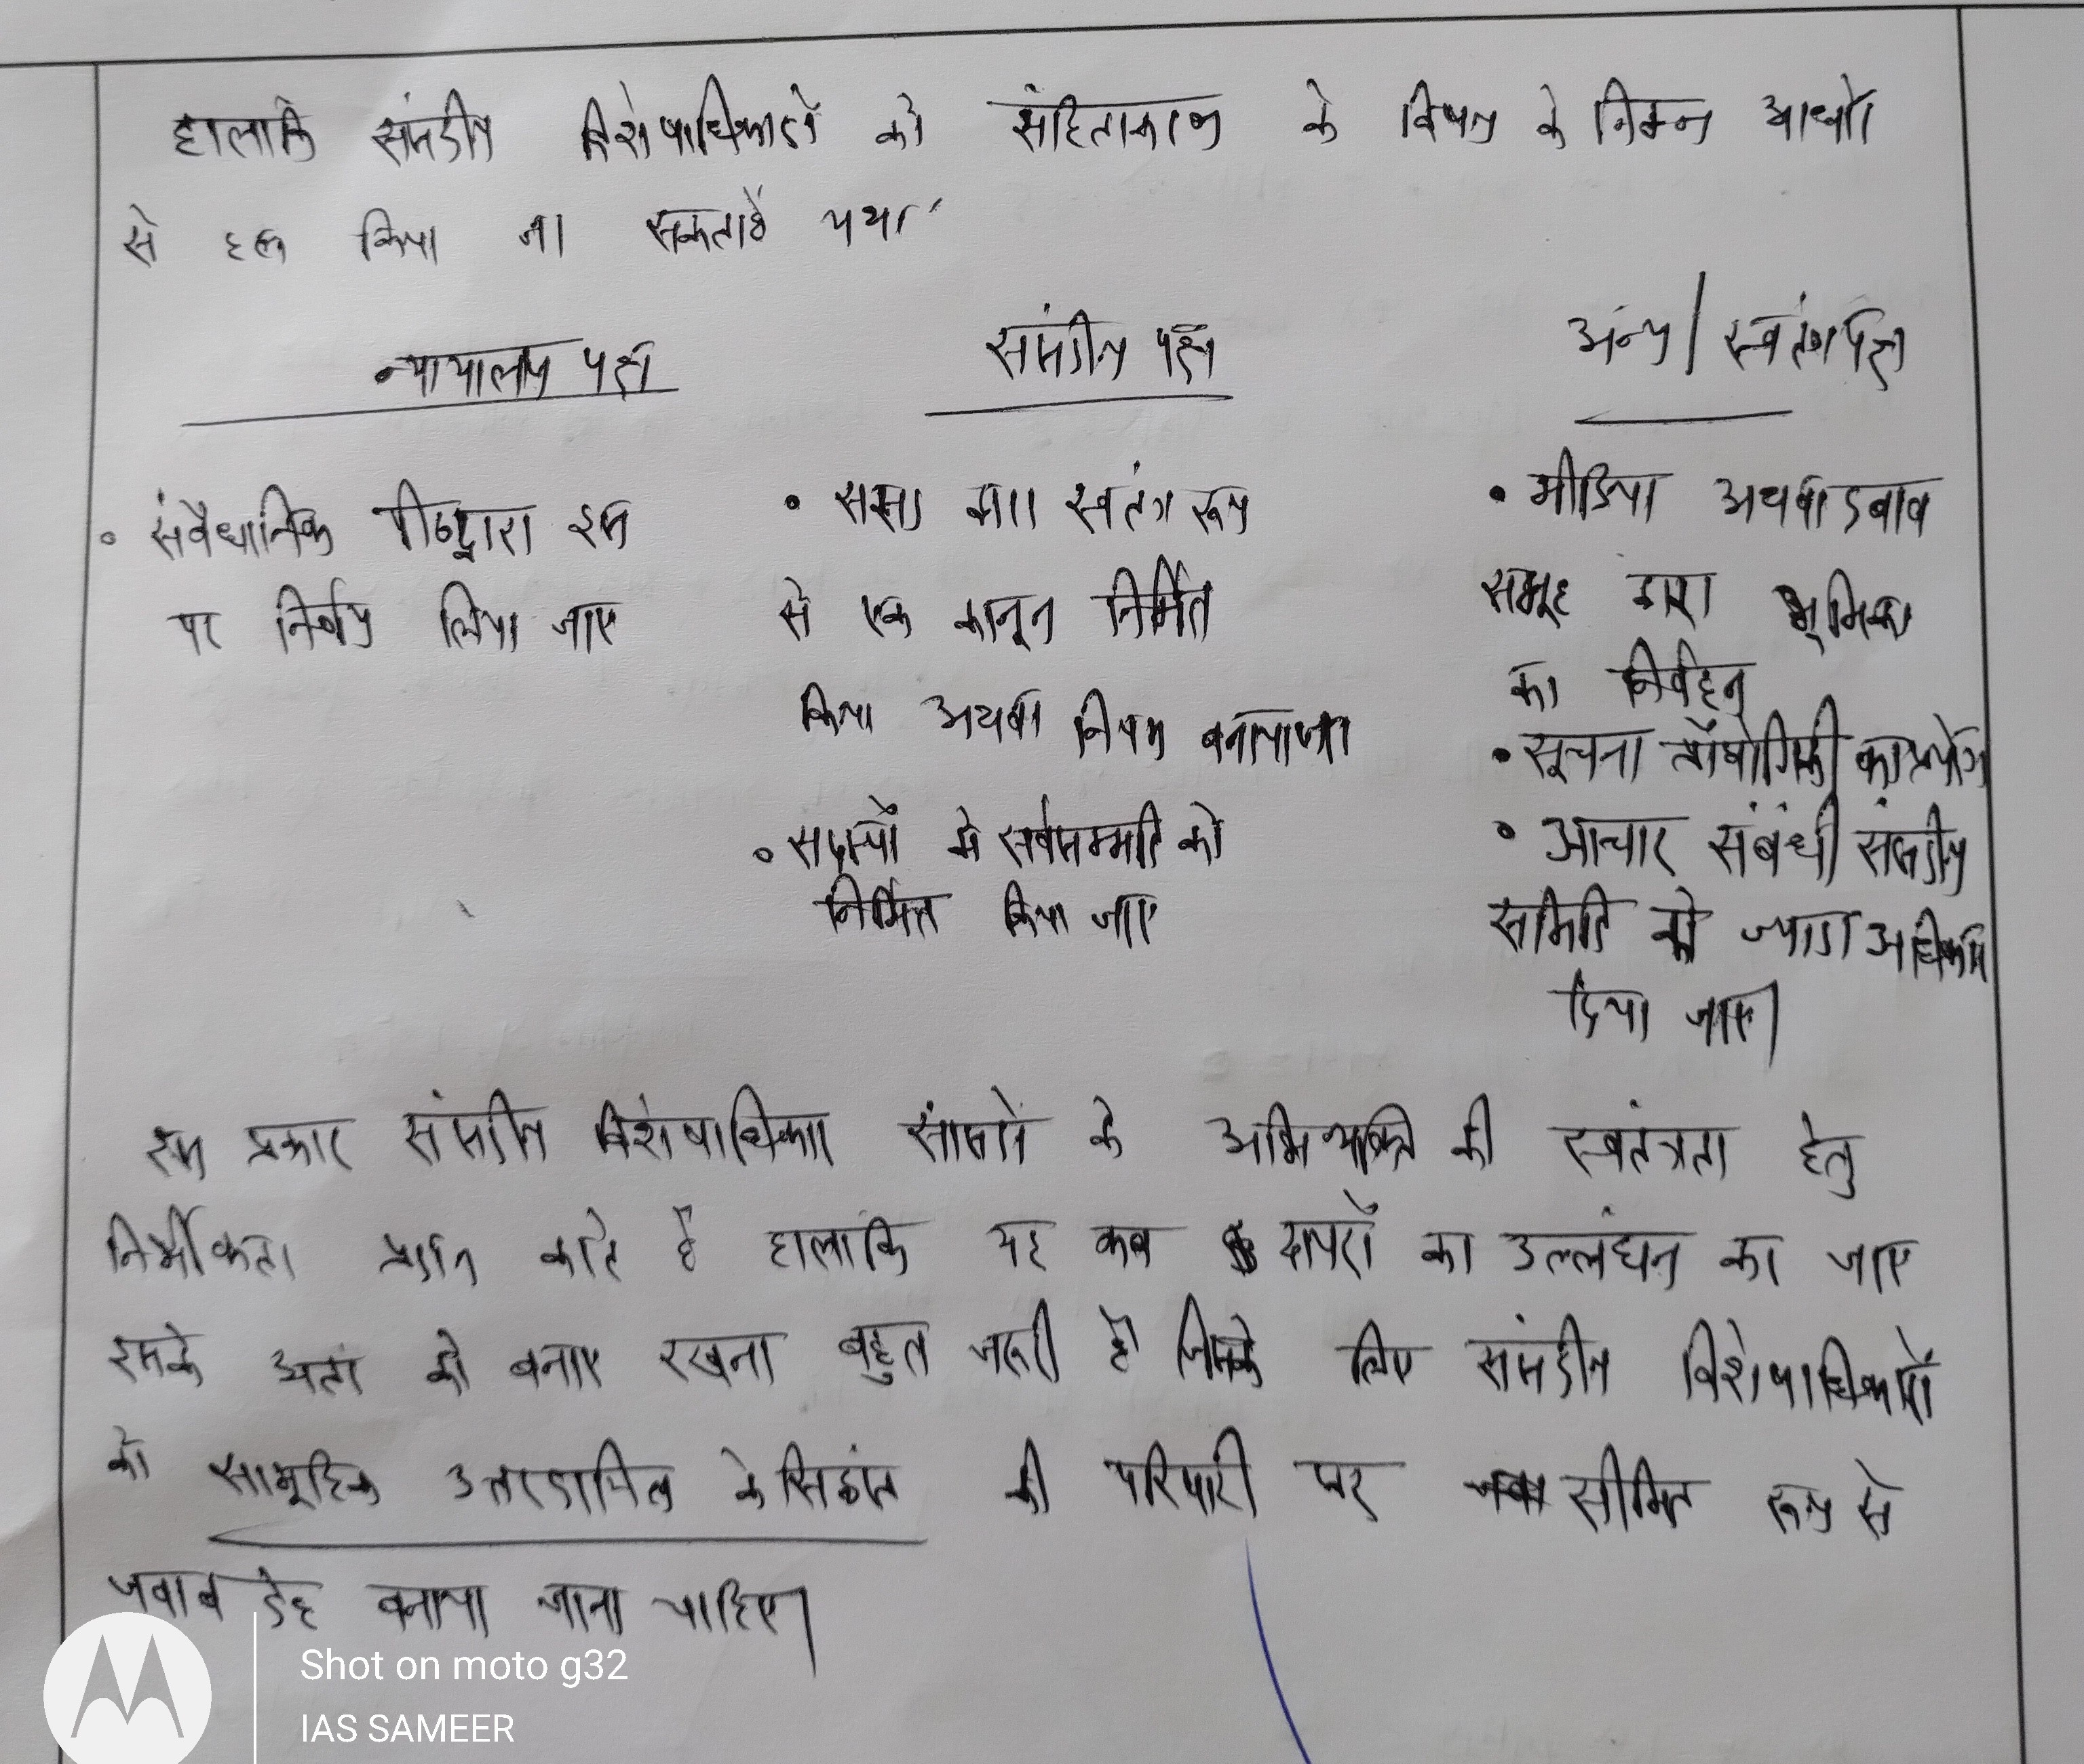 हालांकि संसदीय विशेषाधिकारों को संहिताकरण के विषय के निम्न आधारों
से हल किया जा सकता है यथा
न्यायालय पक्ष
संसदीय पक्ष
अन्य / स्वतंत्र पक्ष
• संवैधानिक पीठ द्वारा इस
पर निर्णय लिया जाए
• संसद द्वारा स्वतंत्र रूप
से एक कानून निर्मित
किया अथवा नियम बनाया जाए
• सदस्यों में सर्वसम्मति को
निर्मित किया जाए
• मीडिया अथवा दबाव
समूह द्वारा भूमिका
का निर्वहन
• सूचना प्रौद्योगिकी का प्रयोग
• आचार संबंधी संसदीय
समिति को ज्यादा अधिकार
दिया जाए।
इस प्रकार संसदीय विशेषाधिकार सांसदों के अभिव्यक्ति की स्वतंत्रता हेतु
निर्भीकता प्रदान करते है हालांकि यह कब दायरों का उल्लंघन कर जाए
इसके अंतर को बनाए रखना बहुत जरूरी है। जिसके लिए संसदीय विशेषाधिकारों
को सामूहिक उत्तरदायित्व के सिद्धांत की परिपाटी पर सीमित रूप से
जवाब देह बनाया जाना चाहिए।
Shot on moto g32
IAS SAMEER